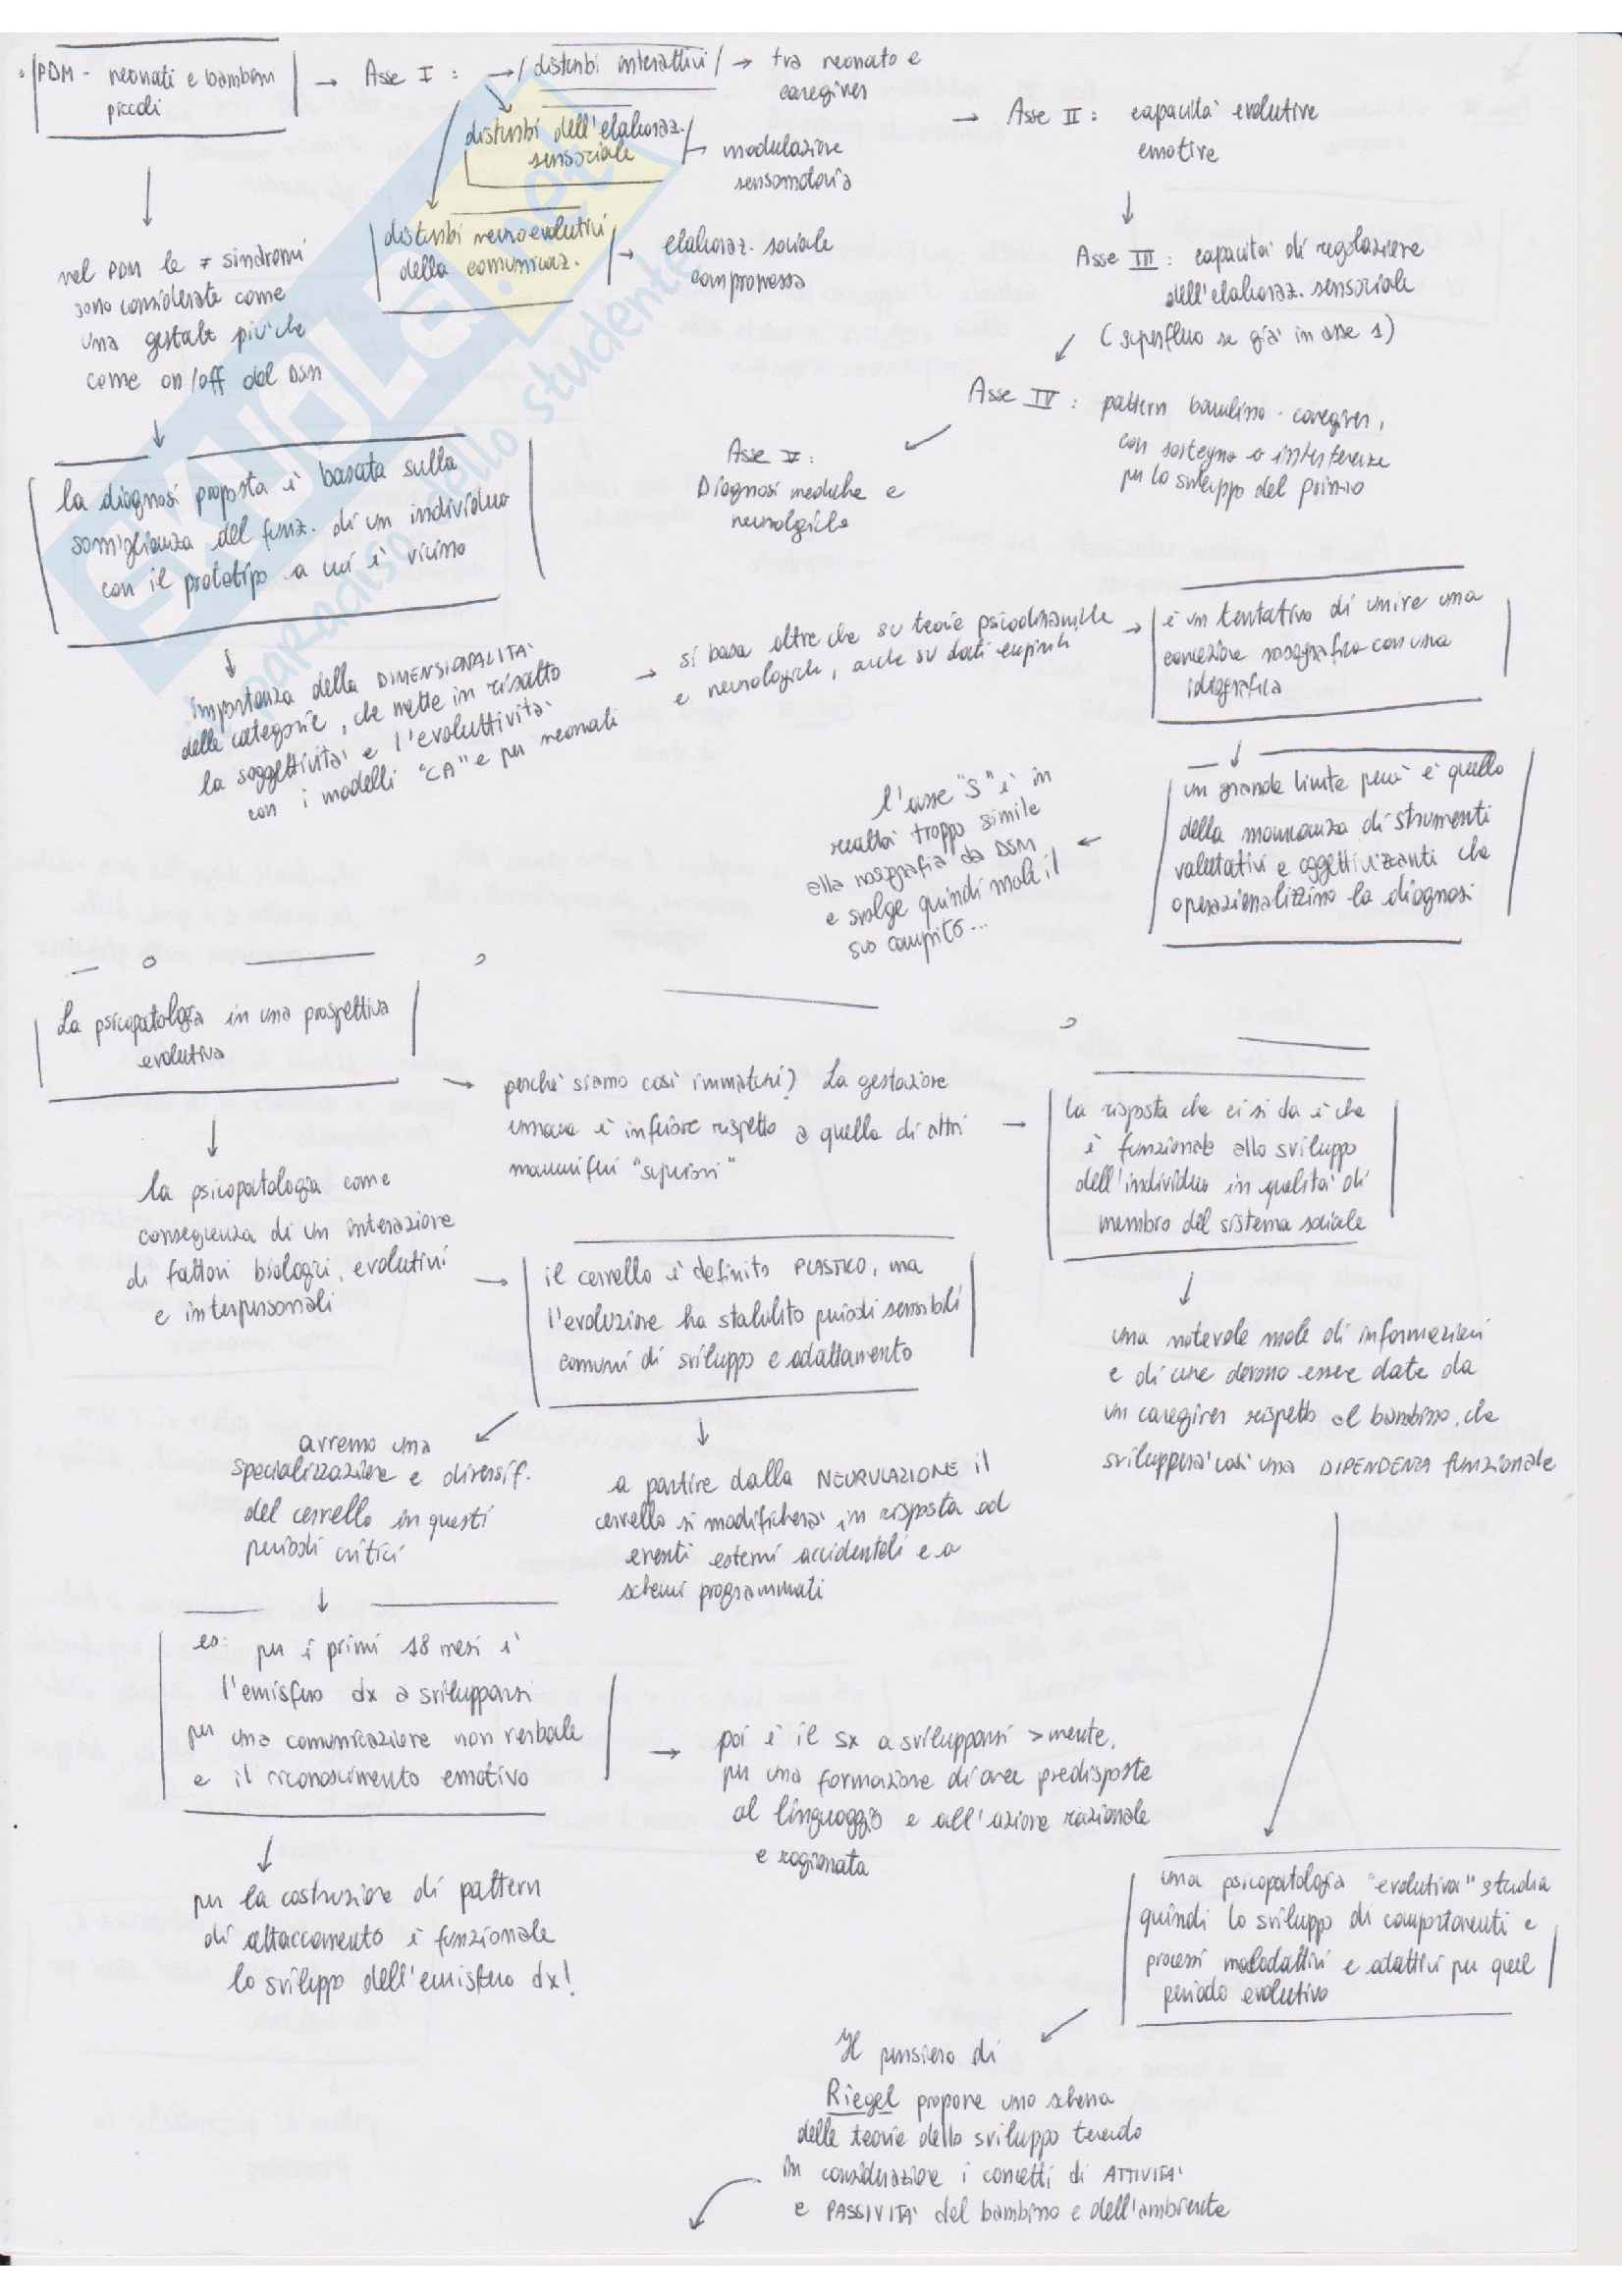 PDM - neonati e bambini
piccoli
→ Asse I :
→ disturbi interattivi → tra neonato e
caregiver
disturbi dell'elaboraz.
sensoriale
modulazione
sensomotoria
disturbi neuroevolutivi
della comunicaz.
→ elaboraz. sociale
compromessa
→ Asse II : capacità evolutive
emotive
Asse III : capacità di regolazione
dell'elaboraz. sensoriale
(superfluo se già in asse 1)
Asse IV : pattern bambino - caregiver,
con sostegno o interferenze
per lo sviluppo del primo
Asse V :
Diagnosi mediche e
neurologiche
nel PDM le ≠ sindromi
sono considerate come
una gestalt più che
come on/off del DSM
la diagnosi proposta è basata sulla
somiglianza del funz. di un individuo
con il prototipo a cui è vicino
importanza della DIMENSIONALITA'
delle categorie, che mette in risalto
la soggettività e l'evoluttività
con i modelli "CA" e per neonati
→ si basa oltre che su teorie psicodinamiche
e neurologiche, anche su dati empirici
→ è un tentativo di unire una
concezione nosografica con una
idiografica
un grande limite però è quello
della mancanza di strumenti
valutativi e oggettivizzanti che
operazionalizzino la diagnosi
l'asse "S" è in
realtà troppo simile
alla nosografia da DSM
e svolge quindi male il
suo compito...
La psicopatologia in una prospettiva
evolutiva
→ perché siamo così immaturi? La gestazione
umana è inferiore rispetto a quella di altri
mammiferi "superiori"
→ la risposta che ci si da è che
è funzionale allo sviluppo
dell'individuo in qualità di
membro del sistema sociale
la psicopatologia come
conseguenza di un interazione
di fattori biologici, evolutivi
e interpersonali
→ il cervello è definito PLASTICO, ma
l'evoluzione ha stabilito periodi sensibili
comuni di sviluppo e adattamento
una notevole mole di informazioni
e di cure devono essere date da
un caregiver rispetto al bambino, che
svilupperà così una DIPENDENZA funzionale
avremo una
specializzazione e diversif.
del cervello in questi
periodi critici
a partire dalla NEURULAZIONE il
cervello si modificherà in risposta ad
eventi esterni accidentali e a
schemi programmati
es: per i primi 18 mesi è
l'emisfero dx a svilupparsi
per una comunicazione non verbale
e il riconoscimento emotivo
→ poi è il sx a svilupparsi >mente,
per una formazione di aree predisposte
al linguaggio e all'azione razionale
e ragionata
per la costruzione di pattern
di attaccamento è funzionale
lo sviluppo dell'emisfero dx!
una psicopatologia "evolutiva" studia
quindi lo sviluppo di comportamenti e
processi maladattivi e adattivi per quel
periodo evolutivo
Il pensiero di
Riegel propone uno schema
delle teorie dello sviluppo tenendo
in considerazione i concetti di ATTIVITA'
e PASSIVITA' del bambino e dell'ambiente
SKUOLA.net
paradiso dello studente